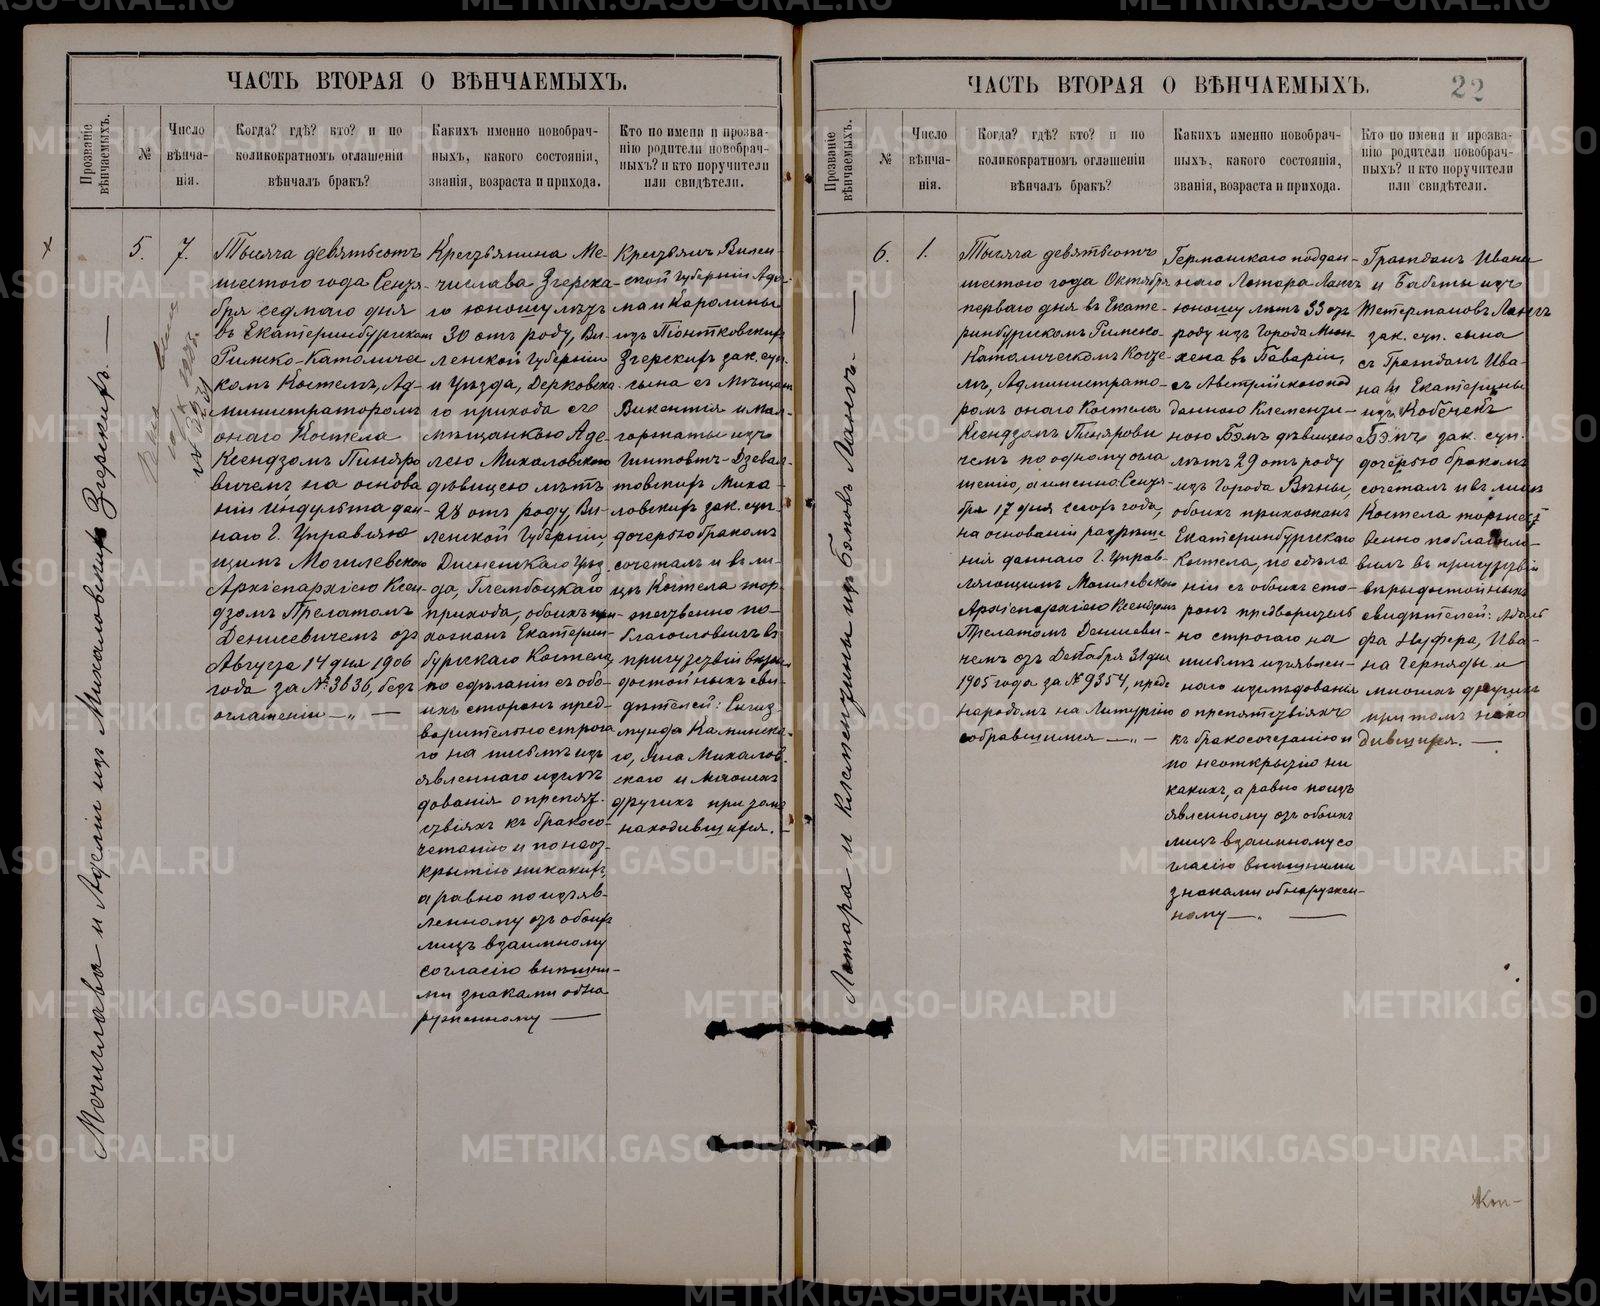 ЧАСТЬ ВТОРАЯ О ВѢНЧАЕМЫХЪ.
Прозваніе
вѣнчаемыхъ.
№
Число
вѣнча-
нія.
Когда? гдѣ? кто? и по
коликократномъ оглашеніи
вѣнчалъ бракъ?
Какихъ именно новобрач-
ныхъ, какого состоянія,
званія, возраста и прихода.
Кто по имени и прозва-
нію родители новобрач-
ныхъ? и кто поручители
или свидѣтели.
Мечислава и Аделіи изъ Михаловскихъ Згерскихъ.
5.
7.
Тысяча девятьсотъ
шестого года Сентя-
бря седмаго дня
въ Екатеринбургскомъ
Римско-Католичес
комъ Костелѣ, Ад-
министраторомъ
онаго Костела
Ксендзомъ Пиняро
вичемъ, на основа
ніи индульта дан-
наго Г. Управляю
щимъ Могилевскою
Архіепархіею Ксен
дзомъ Прелатомъ
Денисевичемъ отъ
Августа 14 дня 1906
года за № 3636, безъ
оглашенія —„—
Крестьянина Ме-
числава Згерска-
го юношу лѣтъ
30 отъ роду, Ви-
ленской Губерніи
и Уѣзда, Дерковска
го прихода съ
мѣщанкою Аде-
лею Михаловскою
дѣвицею лѣтъ
28 отъ роду, Ви-
ленской Губерніи,
Дисненскаго Уѣз
да, Глембоцкаго
прихода, обоихъ при-
хожанъ Екатерин-
бургскаго Костела,
по сдѣланіи съ обо-
ихъ сторонъ пред-
варительно строга
го на письмѣ изъ
явленнаго изслѣ
дованія о препят-
ствіяхъ къ бракосо-
четанію и по неот-
крытію никакихъ,
а равно по изъяв-
ленному отъ обоихъ
лицъ взаимному
согласію внѣшни-
ми знаками обна
руженному —
Крестьянъ Вилен-
ской Губерніи Ада-
ма и Каролины
изъ Піонтковскихъ
Згерскихъ зак. суп.
сына съ Мѣщанъ
Викентія и Мал-
горжаты изъ
Гинтовтъ-Дзевал-
товскихъ Миха-
ловскихъ зак. суп.
дочерью бракомъ
сочеталъ и въ ли-
цѣ Костела тор-
жественно по-
благословилъ въ
присутствіи вѣры
достойныхъ сви-
дѣтелей: Сигиз
мунда Каминска-
го, Яна Михалов-
скаго и многихъ
другихъ при томъ
находившихся. —
ЧАСТЬ ВТОРАЯ О ВѢНЧАЕМЫХЪ.
22
Прозваніе
вѣнчаемыхъ.
№
Число
вѣнча-
нія.
Когда? гдѣ? кто? и по
коликократномъ оглашеніи
вѣнчалъ бракъ?
Какихъ именно новобрач-
ныхъ, какого состоянія,
званія, возраста и прихода.
Кто по имени и прозва-
нію родители новобрач-
ныхъ? и кто поручители
или свидѣтели.
Лотара и Клементины изъ Бэмовъ Лангъ. —
6.
1.
Тысяча девятьсотъ
шестого года Октября
перваго дня въ Екате-
ринбургскомъ Римско-
Католическомъ Косте-
лѣ, Администрато-
ромъ онаго Костела
Ксендзомъ Пинярови
чемъ по одному огла
шенію, а именно: Сентя-
бря 17 дня сего года,
на основаніи разрѣше
нія даннаго Г. Управ-
ляющимъ Могилевскою
Архіепархіею Ксендзомъ
Прелатомъ Денисеви-
чемъ отъ Декабря 31 дня
1905 года за № 9354, предъ
народомъ на Литургію
собравшимся —„—
Германскаго поддан-
наго Лотара Лангъ
юношу лѣтъ 33 отъ
роду изъ Города Мюн-
хена въ Баваріи,
съ Австрійскою под
данною Клементи-
ною Бэмъ дѣвицею
лѣтъ 29 отъ роду
изъ Города Вѣны,
обоихъ прихожанъ
Екатеринбургскаго
Костела, по сдѣла
ніи съ обоихъ сто-
ронъ предваритель
но строгаго на
письмѣ изъявлен-
наго изслѣдованія
о препятствіяхъ
къ бракосочетанію и
по неоткрытію ни
какихъ, а равно по изъ
явленному отъ обоихъ
лицъ взаимному со
гласію внѣшними
знаками обнаружен-
ному —„—
Гражданъ Ивана
и Бабеты изъ
Лангъ
зак. суп. сына
съ Гражданъ Ива-
на и Екатерины
изъ Кобечекъ
Бэмъ зак. суп.
дочерью бракомъ
сочеталъ и въ лицѣ
Костела торжест
венно поблагосло-
вилъ въ присутствіи
вѣры достойныхъ
свидѣтелей: Адоль
фа Нуфера, Ива-
на Черняды и
многихъ другихъ
при томъ нахо
дившихся. —